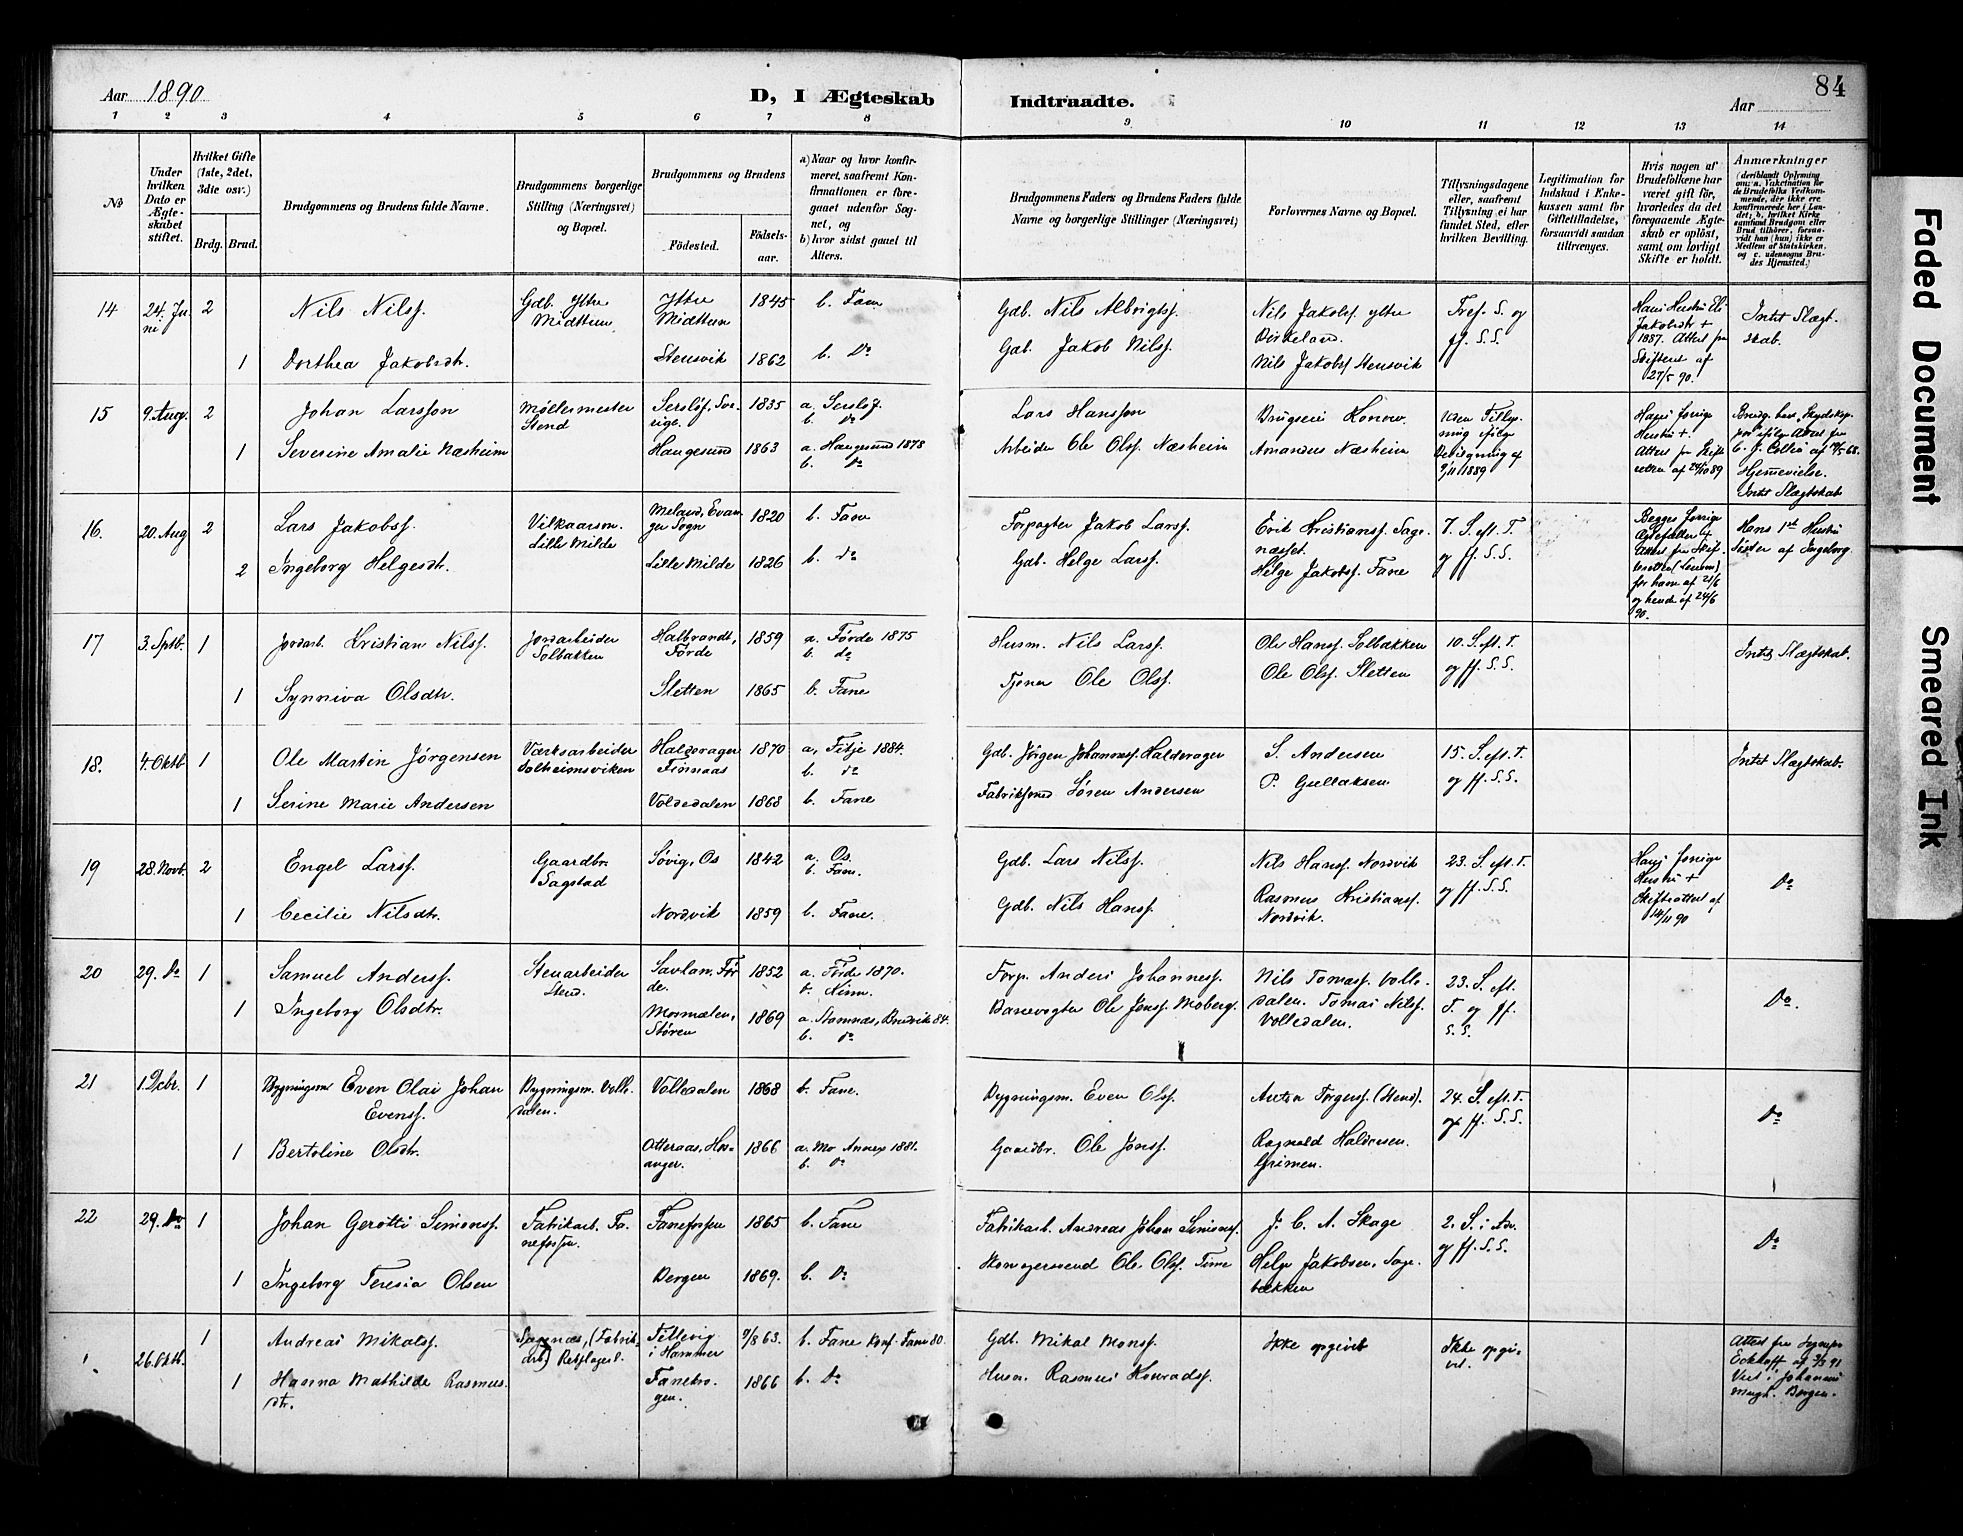 Aar 1890
D, I Ægteskab
Indtraadte.
Aar
84
1 2 3 4 5 6 7 8 9 10 11 12 13 14
No
Under hvilken Dato er Ægteskabet stiftet.
Hvilket Gifte (1ste, 2det, 3die osv.)
Brdg. Brud.
Brudgommens og Brudens fulde Navne.
Brudgommens borgerlige Stilling (Næringsvei) og Bopæl.
Brudgommens og Brudens
Födested. Födselsaar.
a) Naar og hvor konfirmeret, saafremt Konfirmationen er foregaaet udenfor Sognet, og
b) hvor sidst gaaet til Alters.
Brudgommens Faders og Brudens Faders fulde Navne og borgerlige Stillinger (Næringsvei)
Forlovernes Navne og Bopæl.
Tillysningsdagene eller, saafremt Tillysning ei har fundet Sted, efter hvilken Bevilling.
Legitimation for Indskud i Enkekassen samt for Giftetilladelse, forsaavidt saadan tiltrænges.
Hvis nogen af Brudefolkene har været gift för, hvorledes da det foregaaende Ægteskab er oplöst, samt om lovligt Skifte er holdt.
Anmærkninger (deriblandt Oplysning om: a. Vakcination for de Brudefolks Vedkommende, der ikke ere konfirmerede her i Landet; b. hvilket Kirkesamfund Brudgom eller Brud tilhörer, forsaavidt han (hun) ikke er Medlem af Statskirken, og c. udensogns Brudes Hjemsted.)
14 24. Juni 2 Nils Nilsf. Gdb. Ytre Midttun Ytre Midttun 1845 b. Fane Gdb. Nils Albrigtsf. Nils Jakobsf ytre Birkeland. Tref. S. og ff. S.S. Hans Hustru Eli Jakobsdtr + 1887. Attest fra Skifteret af 27/5 90. Intet Slægtskab.
1 Dorthea Jakobsdtr. Stensvik 1862 b. Do Gdb. Jakob Nilsf. Nils Jakobsf Stensvik
15 9. Aug. 2 Johan Larsson Møllermester Stend Serslöf, Sverige. 1835 a. Serslöf. b. do Lars Hansson Brugseier Konow. Uden Tillysning ifölge Bevilgning af 9/11 1889 Hans forrige Hustru +. Attest fra Skifteretten af 24/10 89 Brudg. har Skydskoppor ifölge Attest fra C. J. Collin af 19/5 68. Hjemmevielse. Intet Slægtskab
1 Severine Amalie Næsheim Haugesund 1863 a. Haugesund 1878 b. do Arbeider Ole Olsf. Næsheim Amandus Næsheim
16. 20. Aug 2 Lars Jakobsf. Vilkaarsm. Lille Milde Meland, Evanger Sogn 1820 b. Fane Forpagter Jakob Larsf. Erik Kristiansf. Sagenæsset. 7. S. eft. T. og ff. S.S. Begges forrige Ægtefæller + Attest fra Skifteretten for ham af 21/6 og hende af 24/6 90. Hans 1st Hustru Söster af Ingeborg.
2 Ingeborg Helgesdt. Lille Milde 1826 b. do Gdb. Helge Larsf. Helge Jakobsf. Fane
17 3. Sptb. 1 Jordarb. Kristian Nilsf. Jordarbeider Solbakken Halbrandt, Førde 1859 a. Førde 1875 b. do Husm. Nils Larsf. Ole Hansf. Solbakken 10. S. eft. T. og ff. S.S. Intet Slægtskab.
1 Synniva Olsdtr. Sletten 1865 b. Fane Tjener Ole Olsf. Ole Olsf. Sletten
18. 4. Oktb 1 Ole Martin Jørgensen Værksarbeider Solheimsviken Haldorager Finnaas 1870 a, Fitje 1884. b. do Gdb. Jörgen Johannesf. Haldorager S. Andersen 15. S. eft. T. og ff. S.S. Intet Slægtskab.
1 Serine Marie Andersen Voldedalen 1868 b. Fane Fabriksmed Sören Andersen P. Gullaksen
19 28. Novb. 2 Engel Larsf. Gaardbr. Sagstad Søvig, Os 1842 a. Os. b. Fane. Gdb. Lars Nilsf. Nils Hansf. Nordvik 23. S. eft. T. og ff. S.S. Hans forrige Hustru + Skifteattest af 14/11 90 Do
1 Cecilie Nilsdtr. Nordvik 1859 b. Fane. Gdb. Nils Hansf. Rasmus Kristiansf. Nordvik.
20 29. Do 1 Samuel Andersf. Stenarbeider Stend. Savlan, Førde. 1852 a. Førde 1870. b. Forp. Anders Johannesf. Nils Tomasf. Volledalen. Tomas Nilsf. Volledalen. 23. S. eft. T. og ff. S.S. Do.
1 Ingeborg Olsdtr. Mormælen, Støren 1869 a. Stamnæs, Bruvik 84. b. do Banevogter Ole Jonsf. Moberg.
21 1. Dcbr. 1 Bygningsm Even Olai Johan Evensf. Bygningsm. Volledalen. Volledalen 1868 b. Fane. Bygningsm. Even Olsf. Torgersf. (Stend). 24. S. eft. T. og ff. S.S. Do
1 Bertoline Olsdtr. Otteraas, Hosanger. 1866 a. Mo Annex 1881. b. Do Gaardbr. Ole Jonsf. Ragnald Haldorsen. Grimen.
22 29. Do 1 Johan Gerotti Simonsf. Fabrikarb. Fanefossen. Fanefossen 1865 b. Fane Fabrikarb. Andreas Johan Simonsf. J. C. A. Skage 2. S. i Adv. og ff. S.S. Do
1 Ingeborg Teresia Olsen Bergen 1869. b. Do Skomagersvend Ole Olsf. Helge Jakobsen, Sagebækken
26. Oktb. 1 Andreas Mikalsf. Sagenæs, (Fabrikarb) Rebslagerf. Tellevig i Hammer 9/8 63. b. Fane Konf. Fane 80. Gdb. Mikal Monsf. Ikke opgivet Ikke opgivet. Attest fra Sognepr. Eckhoff af 3/3 91 Viet i Johannes Mengh. Bergen.
1 Hanna Mathilde Rasmusdtr. Fanekrogen. 1866 b. Do Husm. Rasmus Konradsf.
Faded Document
Smeared Ink